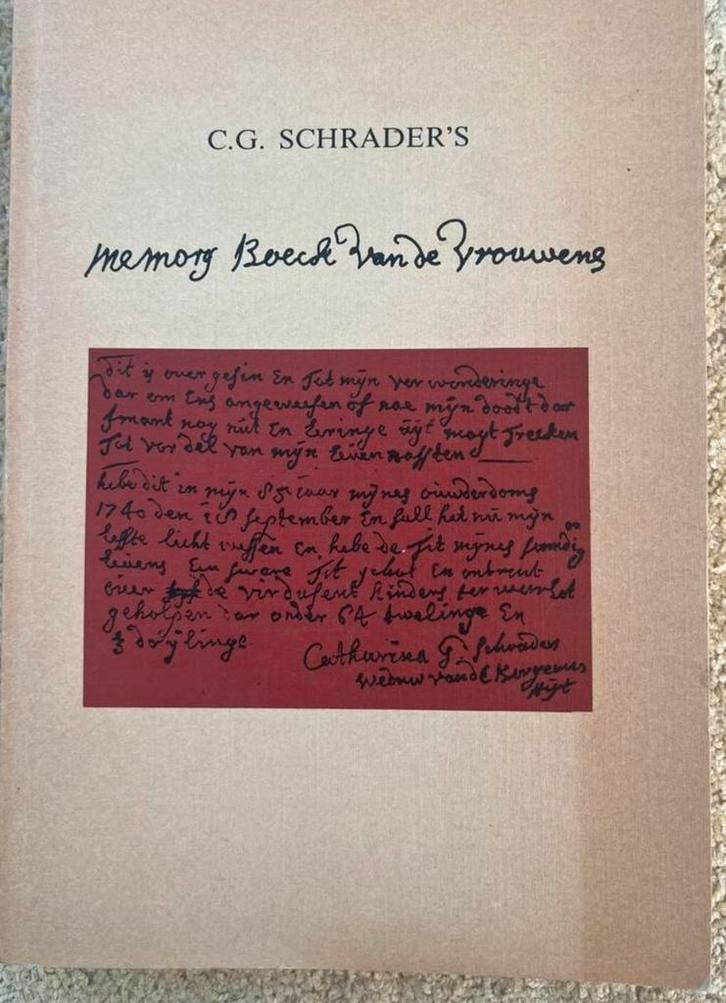 C.G. SCHRADER'S
Memory Boeck van de Vrouwens
Dit is over gesin En Tot mijn verwonderinge
dar om Ens angeweesen of nae mijn doodt dar
Imant nog nut En leringe uijt mogt Trecken
Tot vordel van mijn Even naesten
hebe dit in mijn 85 jaar mijnes ouwderdoms
1740 den 18 september En sall het nu mijn
leste licht wessen En hebe de Tit mijnes
levens Een sware Tit gehat En ontrent
over de virdusent kinders ter werrelt
geholpen dar onder 64 twelinge En
3 drijlinge
Catharina G. Schraders
weduw van de Borgemes